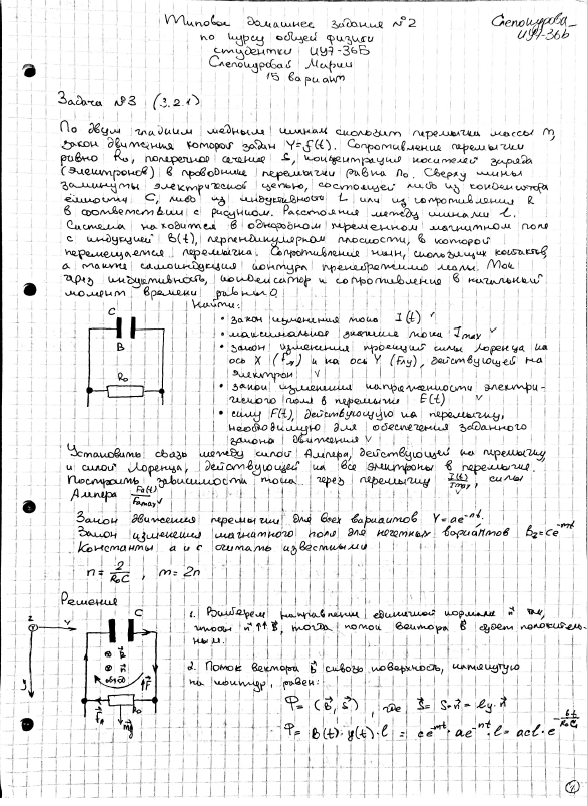 Типовое домашнее задание №2
по курсу общей физики
студентки ИУ7-36Б
Слепокуровой Марии
15 вариант
Слепокурова_
ИУ7-36Б
Задача №3 (3.2.1)
По двум гладким медным шинам скользит перемычка массы m,
закон движения которой задан Y=f(t). Сопротивление перемычки
равно R₀, поперечное сечение S, концентрация носителей заряда
(электронов) в проводнике перемычки равна n₀. Сверху шины
замкнуты электрической цепью, состоящей либо из конденсатора
ёмкости C, либо из индуктивности L или из сопротивления R
в соответствии с рисунком. Расстояние между шинами l.
Система находится в однородном переменном магнитном поле
с индукцией B(t), перпендикулярном плоскости, в которой
перемещается перемычка. Сопротивление шин, скользящих контактов,
а также самоиндукция контура пренебрежимо малы. Ток
через индуктивность, конденсатор и сопротивление в начальный
момент времени равны 0
Найти:
C
B
R₀
• закон изменения тока I(t)
• максимальное значение тока Imax
• закон изменения проекций силы Лоренца на
ось X (Fлx) и на ось Y (Fлy), действующей на
электрон
• закон изменения напряженности электри-
ческого поля в перемычке E(t)
• силу F(t), действующую на перемычку,
необходимую для обеспечения заданного
закона движения
Установить связь между силой Ампера, действующей на перемычку,
и силой Лоренца, действующей на все электроны в перемычке.
Построить зависимости тока через перемычку I(t)/Imax, силы
Ампера Fa(t)/Famax
Закон движения перемычки для всех вариантов Y=ae^-nt.
Закон изменения магнитного поля для нечетных вариантов Bz=ce^-mt
Константы a и c считать известными
n = 2/R₀C , m = 2n
Решение
z
x
y
C
F
Fa
R₀
mg
1. Выберем направление единичной нормали n так,
чтобы n↑↑B, тогда поток вектора B будет положитель-
ным.
2. Поток вектора B сквозь поверхность, натянутую
на контур, равен:
Φ = (B, S) , где S = S·n = ly·n
Φ = B(t)·y(t)·l = ce^-mt·ae^-nt·l = acl·e^-6t/R₀C
1